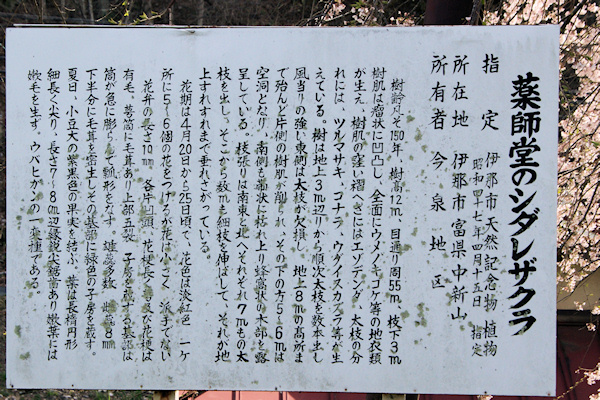 薬師堂のシダレザクラ
指定 伊那市天然記念物 植物
昭和四十七年四月十五日 指定
所在地 伊那市富県中新山
所有者 今泉地区
樹齢凡そ150年、樹高12m、目通り周55m 枝下3m
樹肌は瘤状に凹凸し、全面にウメノキゴケ等の地衣類
が生え、樹肌の窪い褶へきにはエゾデンダ、太枝の分
れには、ツルマサキ、コナラ、ウグイスカグラ等が生
えている。樹は地上3m辺りから順次太枝を数本出し
風当りの強い東側は太枝が欠損し、地上8mの高所ま
で殆んど片側の樹肌が削られ、その下の方5〜6mは
空洞となり、南側も帯状に枯れ上り蜂窩状の木部を露
呈している。枝張りは南東を北へそれぞれ7mもの太
枝を出し、そこから数mも細枝を伸ばして、それが地
上すれすれまで垂れさがっている。
花期は4月20日から25日頃で、花色は淡紅色 一ケ
所に5〜6個の花をつけるが花は小さく 派手でない
花弁の長さ10mm 各片凹頭、花梗長く萼及び花梗は
有毛、萼筒に毛あり上部五裂 子房を蔵する基部は
筒が急に膨らんで瓢形をなす 雄蕊多数 雌蕊8mm
下半分に毛茸を密生しその基部に緑色の子房を蔵す。
夏日、小豆大の紫黒色の果実を結ぶ 葉は長楕円形
細長く尖り、長さ7〜8cm辺縁鋭尖鋸歯あり 嫩葉には
嫩毛を生ず。ウバヒガンの一変種である。